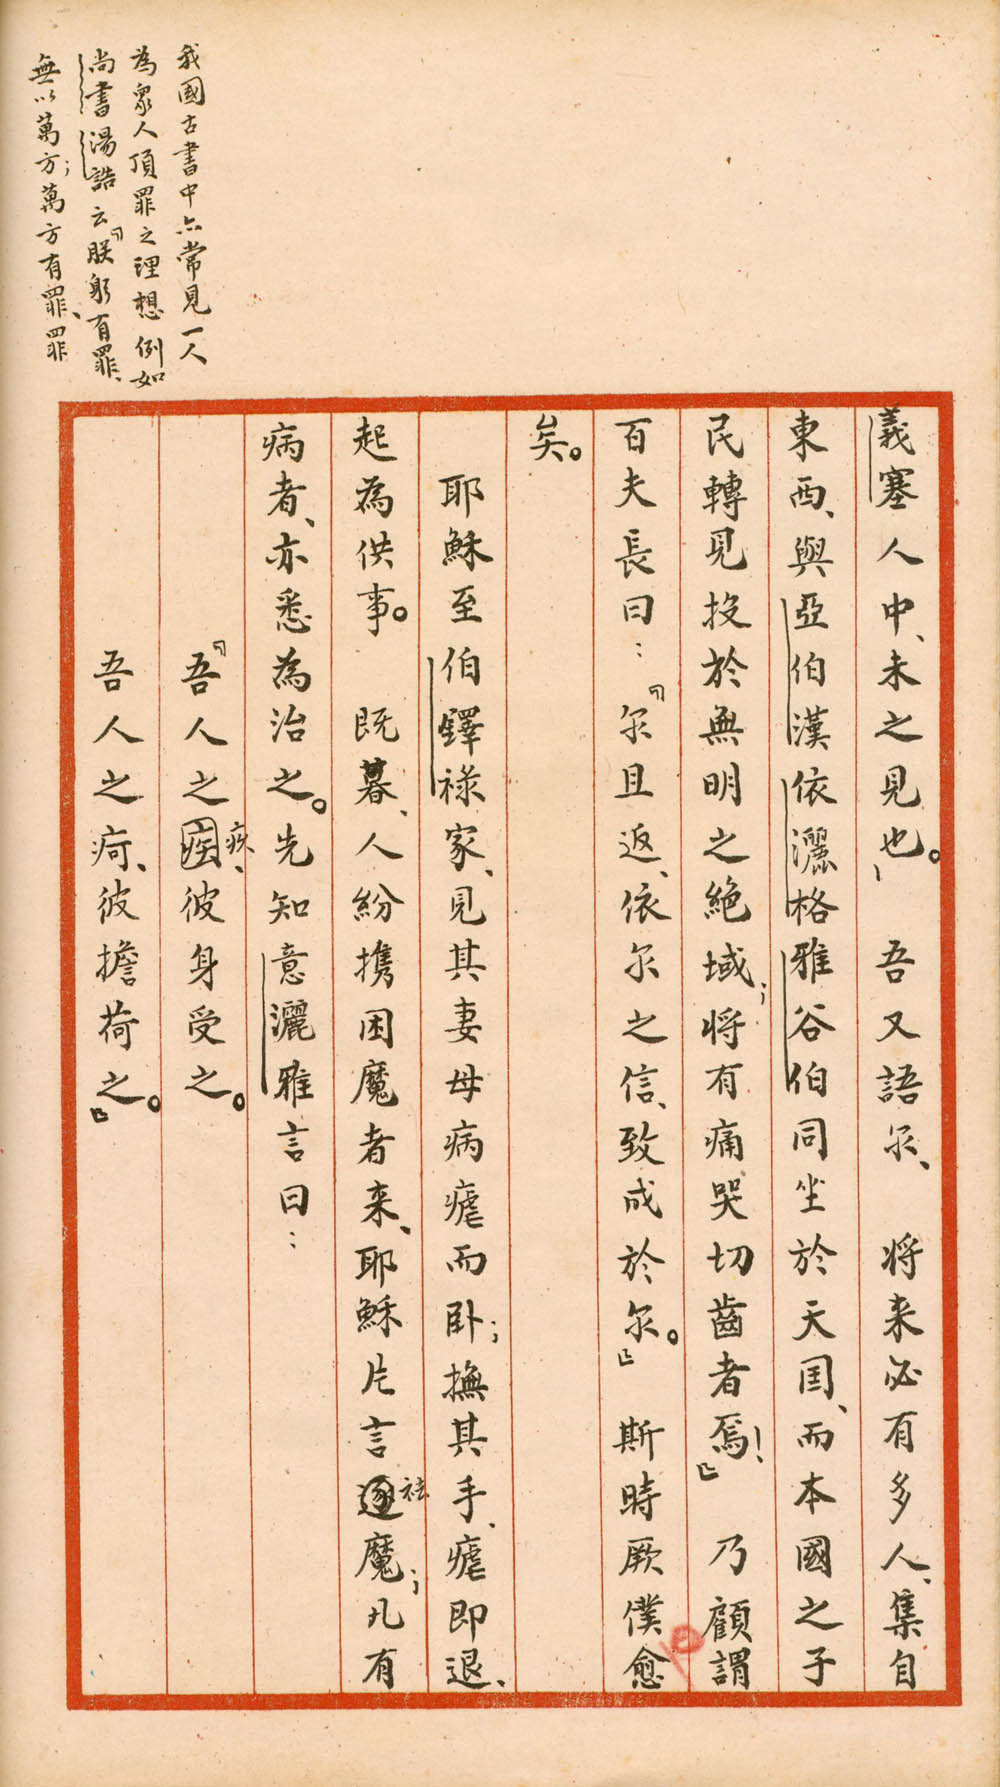 我國古書中亦常見一人
為衆人頂罪之理想例如
尚書湯誥云「朕躬有罪、
無以萬方；萬方有罪、罪
義塞人中、未之見也。」吾又語尔、將来必有多人、集自
東西、與亞伯漢依灑格雅谷伯同坐於天国、而本國之子
民轉見投於無明之絶域；將有痛哭切齒者焉！」乃顧謂
百夫長曰：「尔且返、依尔之信、致成於尔。」斯時厥僕愈
矣。
耶穌至伯鐸祿家、見其妻母病瘧而卧；撫其手、瘧即退、
起為供事。既暮、人紛携困魔者来、耶穌片言祛魔；凡有
病者、亦悉為治之。先知意灑雅言曰：
「吾人之疾、彼身受之。
吾人之疴、彼擔荷之。」